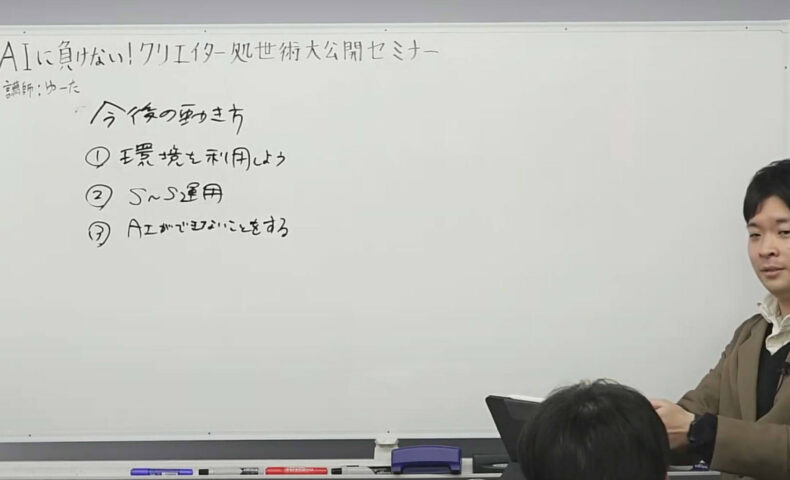 AIに負けない!クリエイター処世術大公開セミナー
講師:ゆーた
今後の動き方
① 環境を利用しよう
② S~S運用
③ AIができないことをする